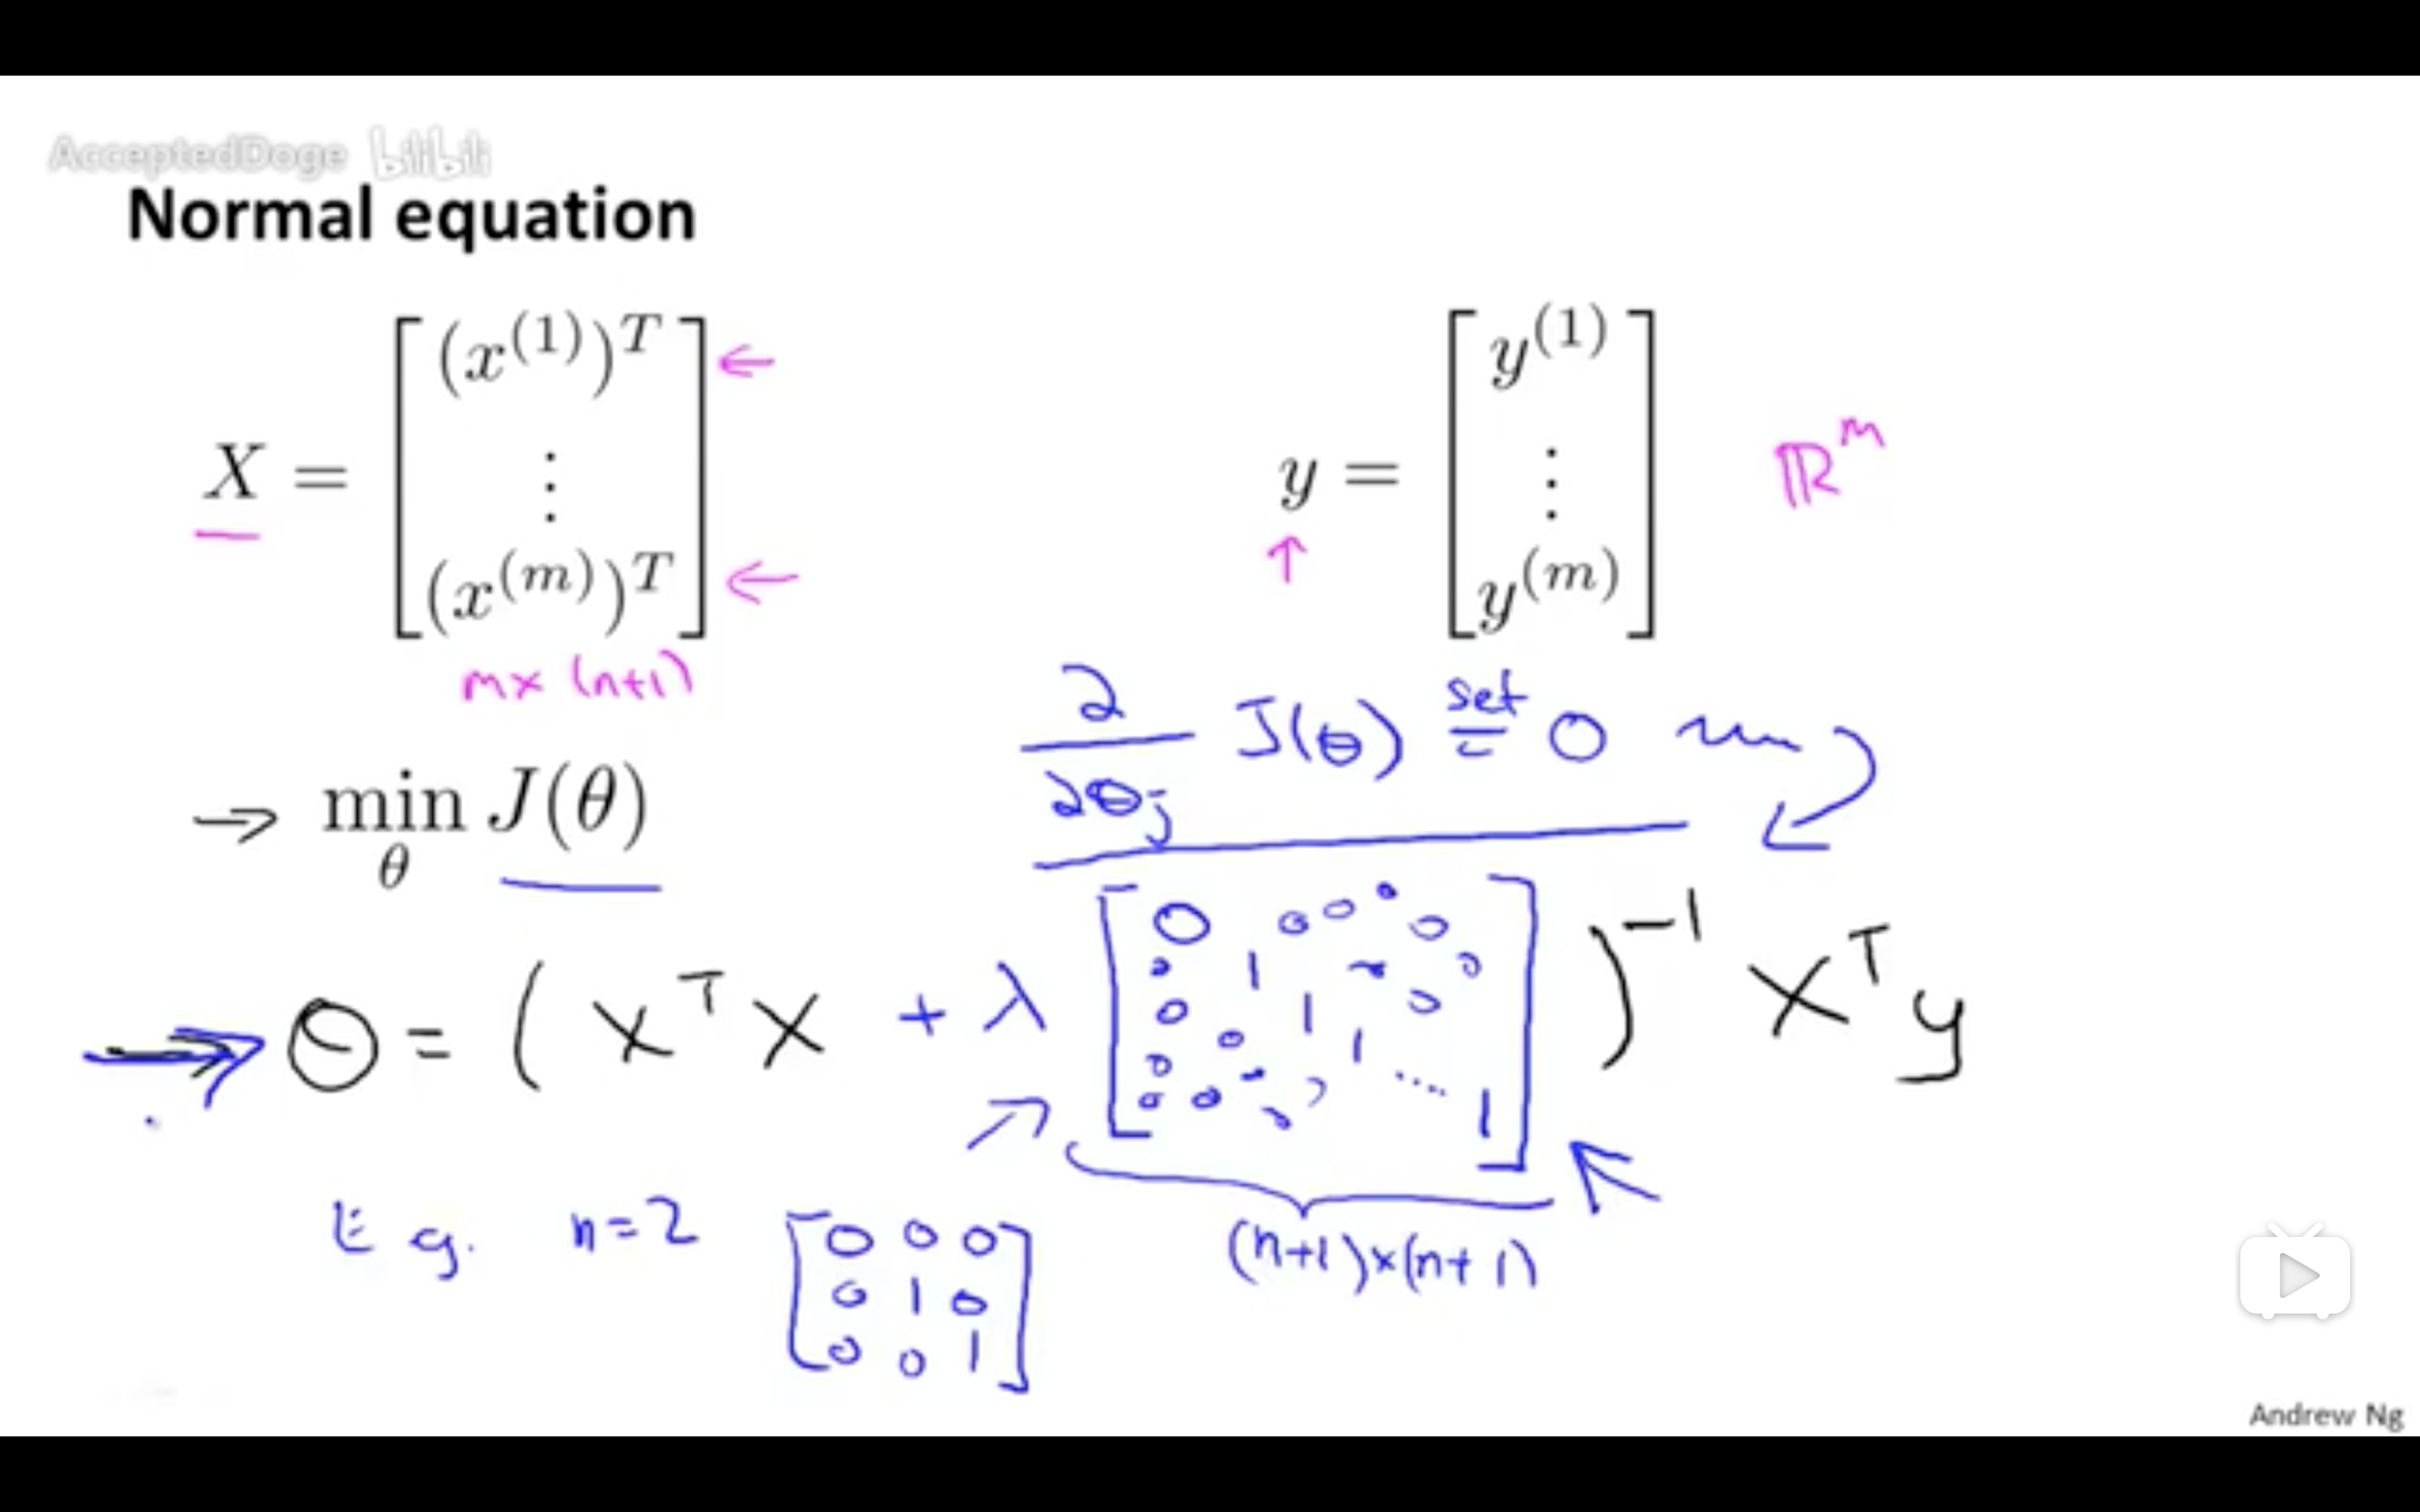 AcceptedDoge bilibili
Normal equation
X = [ (x^(1))^T ⋮ (x^(m))^T ] ← ←
m× (n+1)
y = [ y^(1) ⋮ y^(m) ] ℝ^m
↑
→ min_θ J(θ)
∂/∂θj J(θ) set = 0
→ θ = ( X^T X + λ [ 0 0 0 0 0 1 0 0 1 0 0 1 0 0 ⋱ 1 ] )^-1 X^T y
(n+1)×(n+1)
E.g. n=2 [ 0 0 0
0 1 0
0 0 1 ]
Andrew Ng